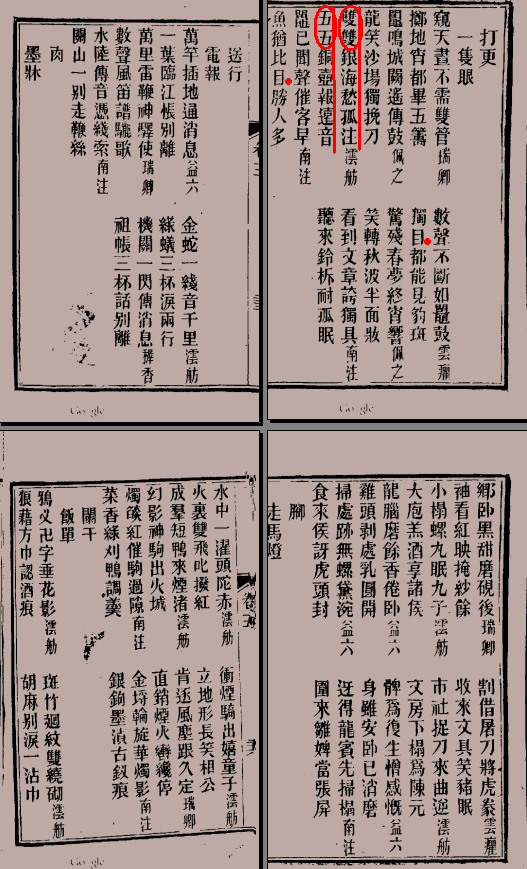 打更
一隻眼
窺天晝不需雙管瑞卿 數聲不斷如鼉鼓雲癯
擲地宵都畢五籌 獨目都能見豹斑
鼉鳴城闕遙傳鼓佩之 驚殘春夢終宵響佩之
龍笑沙場獨挽刀 笑轉秋波半面妝
雙雙銀海愁孤注澐舫 看到文章誇獨具南注
五五銅壺報遠音 聽來鈴柝耐孤眠
鼉已聞聲催客早南注
魚猶比目勝人多
送行
電報
萬竿插地通消息益六 金蛇一綫音千里澐舫
一葉臨江帳別離 綠蟻三杯淚兩行
萬里雷鞭神驛使瑞卿 機關一閃傳消息
數聲風笛譜驪歌 祖帳三杯話別離
水陸傳音憑綫索南注
關山一別走輪
肉
墨牀
鄉卧黑甜磨硯後瑞卿 割借屠刀將虎裂雲癯
袖看紅映掩紗餘 收來文具笑豬眠
小榻螺丸眠九子澐舫 市社捉刀來曲逆澐舫
大庖羔酒享諸侯 文房下榻爲陳元
龍腦磨餘香倦卧益六 髀爲復生憎感慨益六
雞頭剥處乳圍開 身雖安卧已消磨
掃處跡無螺黛涴益六 迓得龍賓先掃榻南注
食來侯訝虎頭封 圍來雛婢當張屏
腳
走馬燈
水中一濯頭陀赤澐舫 衝煙騎出嬉童子澐舫
火裏雙飛叱撥紅 立地形長笑相公
成羣短鴨來煙渚澐舫 肯送風塵跟久定瑞卿
幻影神駒出火城 直銷煙火轡纔停
燭燄紅催駒過隙南注 金埒輪旋華燭影南注
菜香綠刈鴨調羹 銀鉤墨漬古釵痕
闌干
飯單
鴉叉卍字垂花影澐舫 斑竹迴紋雙繞砌澐舫
狼藉方巾認酒痕 胡麻別淚一沾巾
Google
Google
Google
Google